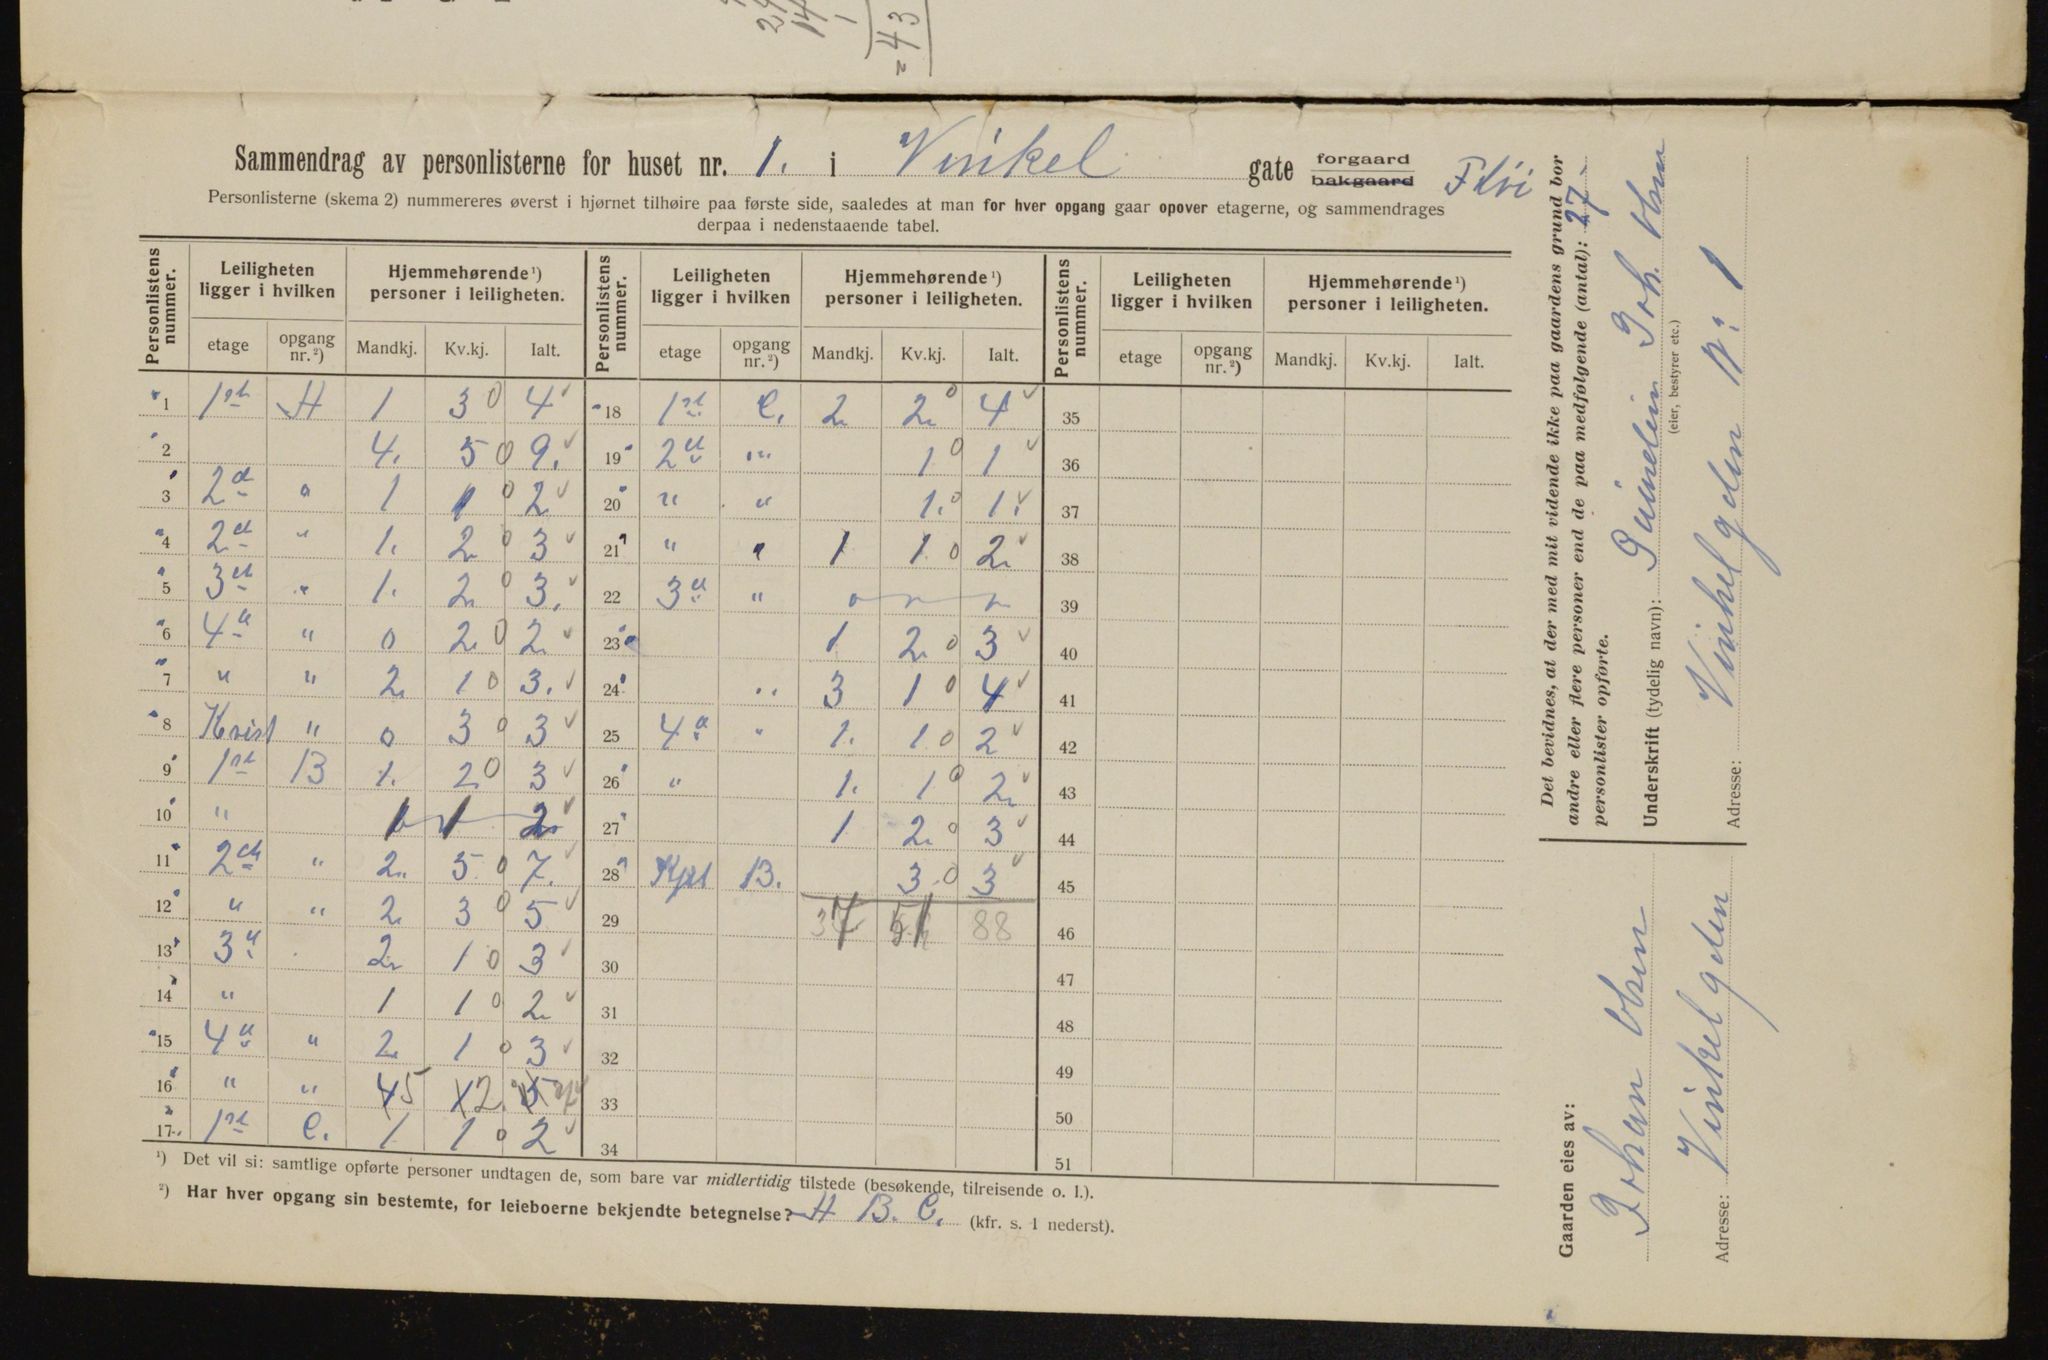 43
Sammendrag av personlisterne for huset nr. 1. i Vinkel gate forgaard
bakgaard
Personlisterne (skema 2) nummereres øverst i hjørnet tilhøire paa første side, saaledes at man for hver opgang gaar opover etagerne, og sammendrages
derpaa i nedenstaaende tabel.
Personlistens nummer. Leiligheten ligger i hvilken Hjemmehørende¹) personer i leiligheten. Personlistens nummer. Leiligheten ligger i hvilken Hjemmehørende¹) personer i leiligheten. Personlistens nummer. Leiligheten ligger i hvilken Hjemmehørende¹) personer i leiligheten.
etage opgang nr.²) Mandkj. Kv.kj. Ialt. etage opgang nr.²) Mandkj. Kv.kj. Ialt. etage opgang nr.²) Mandkj. Kv.kj. Ialt.
1 1st A 1 3 0 4 18 1st C. 2 2 0 4 35
2 4. 5 0 9. 19 2d " 1 0 1 36
3 2d " 1 1 0 2 20 " " 1. 0 1. 37
4 2d " 1. 2 0 3 21 " " 1 1 0 2 38
5 3d " 1. 2 0 3. 22 3d " 39
6 4d " 0 2 0 2 23 1 2 0 3 40
7 " " 2 1 0 3. 24 " 3 1 0 4 41
8 Kvist " 0 3 0 3 25 4d " 1. 1 0 2 42
9 1st B 1. 2 0 3 26 " 1. 1 0 2 43
10 " 1 1 2 27 1 2 0 3 44
11 2d " 2 5 0 7. 28 B. 3 0 3 45
12 " " 2 3 0 5 29 37 51 88 46
13 3d 2 1 0 3 30 47
14 " 1 1 0 2 31 48
15 4d " 2 1 0 3 32 49
16 " " 4 5 1 2 5 7 33 50
17 1st C. 1 1 0 2 34 51
¹) Det vil si: samtlige opførte personer undtagen de, som bare var midlertidig tilstede (besøkende, tilreisende o. l.).
²) Har hver opgang sin bestemte, for leieboerne bekjendte betegnelse? A B. C. (kfr. s. 1 nederst).
Det bevidnes, at der med mit vidende ikke paa gaardens grund bor
andre eller flere personer end de paa medfølgende (antal): 27
personlister opførte.
Underskrift (tydelig navn): Joh. Olsen
(eier, bestyrer etc.)
Adresse: Vinkelgaden No 1
Gaarden eies av:
Johan Olsen
Adresse: Vinkelgaden